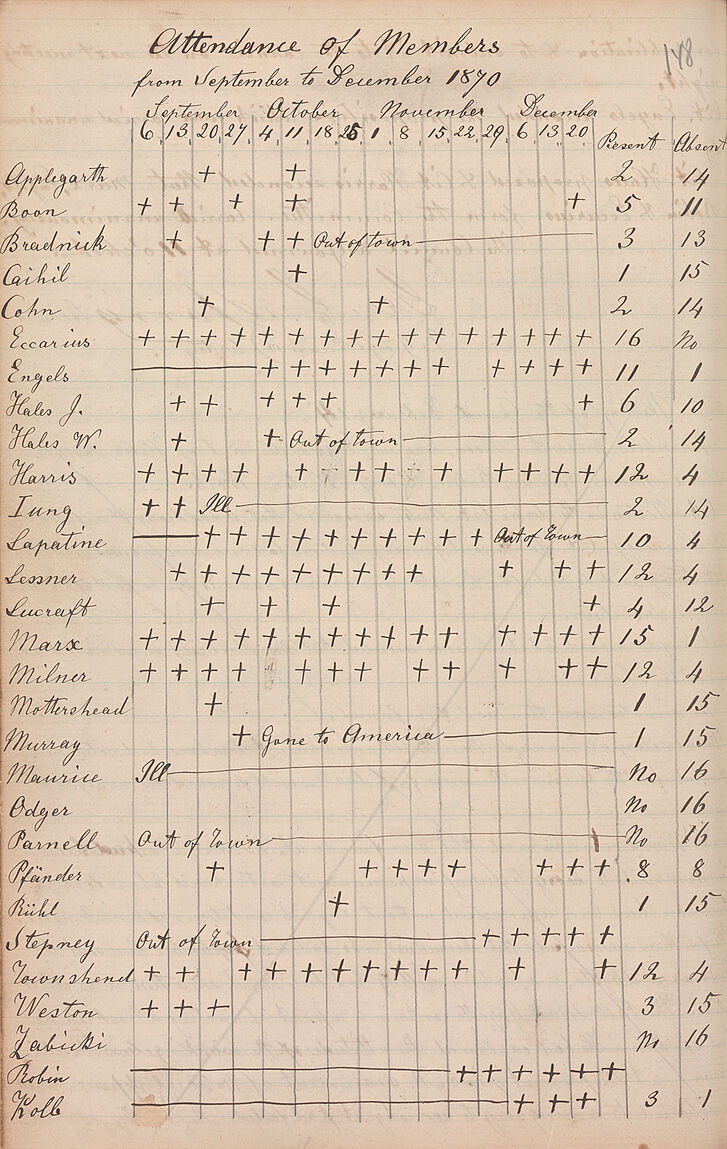 148
Attendance of Members
from September to December 1870
September October November December
6 13 20 27 4 11 18 25 1 8 15 22 29 6 13 20 Present Absent
Applegarth + + 2 14
Boon + + + + + 5 11
Bradnick + + + Out of town 3 13
Caihil + 1 15
Cohn + + 2 14
Eccarius + + + + + + + + + + + + + + + + 16 No
Engels + + + + + + + + + + + 11 1
Hales J. + + + + + + 6 10
Hales W. + + Out of town 2 14
Harris + + + + + + + + + + + + 12 4
Iung + + Ill 2 14
Lapatine + + + + + + + + + + Out of Town 10 4
Lessner + + + + + + + + + + + + 12 4
Lucraft + + + + 4 12
Marx + + + + + + + + + + + + + + + 15 1
Milner + + + + + + + + + + + + 12 4
Mottershead + 1 15
Murray + Gone to America 1 15
Maurice Ill No 16
Odger No 16
Parnell Out of Town No 16
Pfänder + + + + + + + + 8 8
Rühl + 1 15
Stepney Out of Town + + + + +
Townshend + + + + + + + + + + + + 12 4
Weston + + + 3 15
Zabicki No 16
Robin + + + + + +
Kolb + + + 3 1